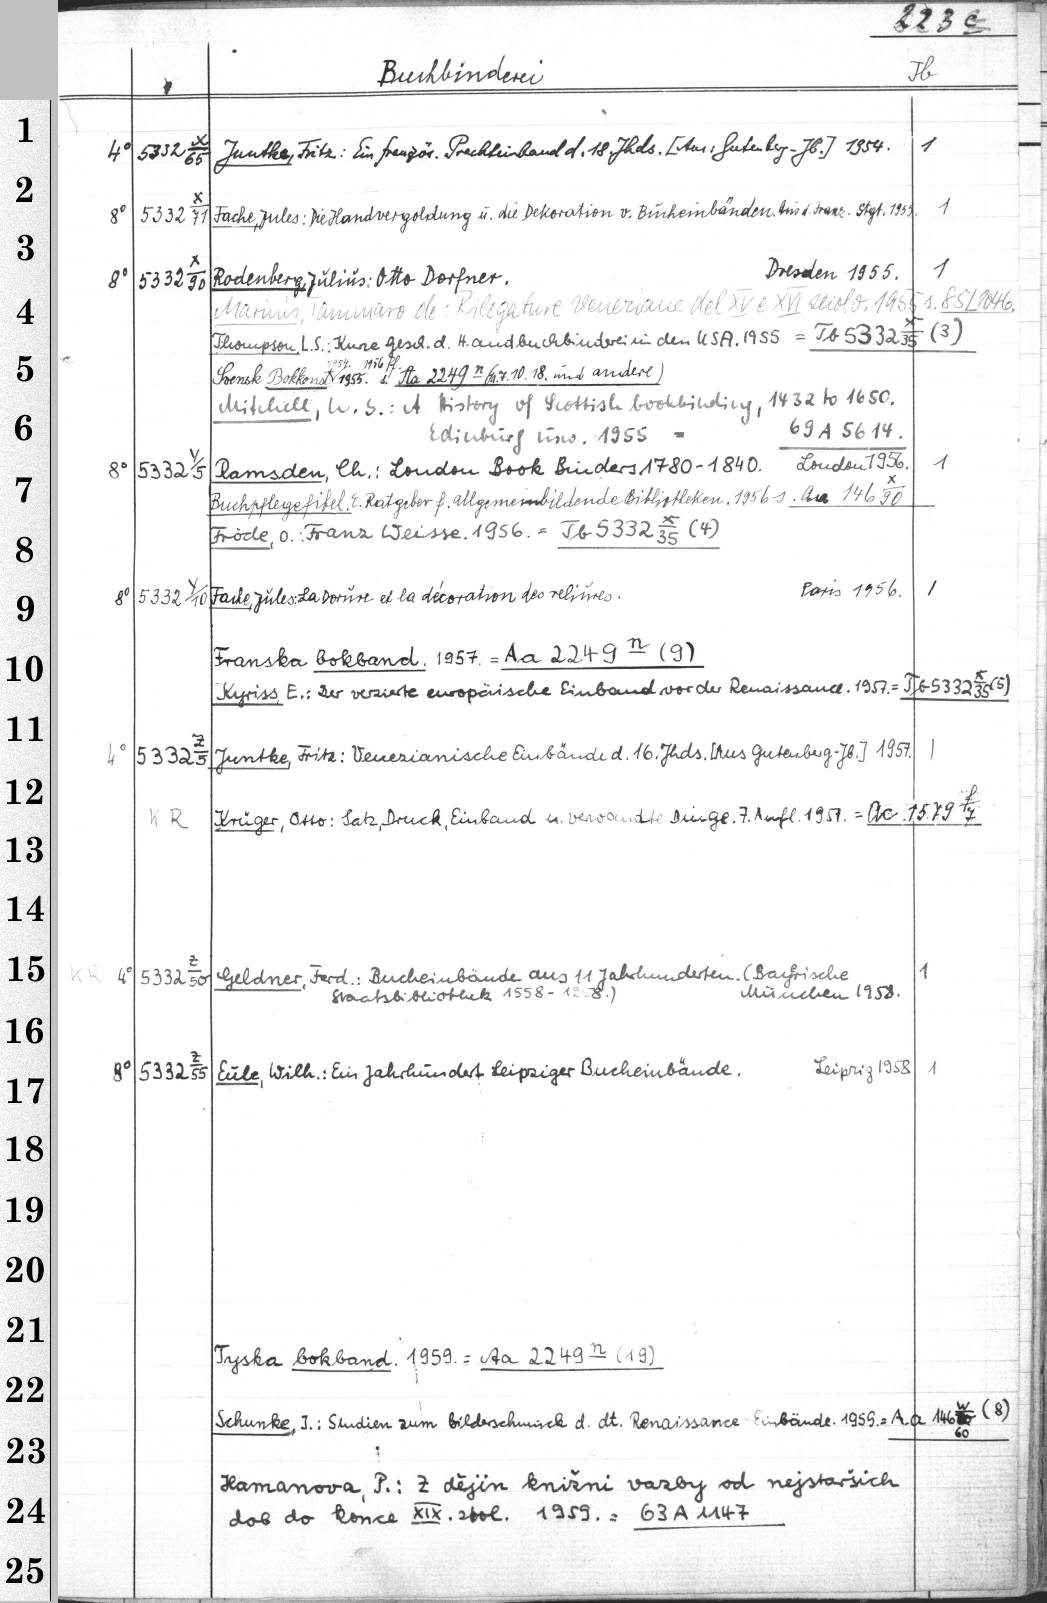 223 c
Buchbinderei Tb
1
4° 5332 x/65 Juntke, Fritz: Ein französ. Prachteinband d. 18. Jhds. [Aus: Gutenberg-Jb.] 1954. 1
2
8° 5332 x/71 Fache, Jules: Die Handvergoldung u. die Dekoration v. Bucheinbänden. Aus d. Franz. Stgt. 1955. 1
3
8° 5332 x/90 Rodenberg, Julius: Otto Dorfner. Dresden 1955. 1
4
Marinis, Tammaro de: Rilegature Veneziane del XV e XVI secolo. 1955 s. 85/2046.
Thompson, L.S.: Kurze gesch. d. Handbuchbinderei in den USA. 1955 = Tb 5332 x/35 (3)
5
1954. 1956 ff.
Svensk Bokkonst 1955. s. Aa 2249 n (4.7.10.18. und andere)
Mitchell, W. S.: A History of Scottish bookbinding, 1432 to 1650.
6
Edinburg univ. 1955 = 69 A 5614.
8° 5332 y/5 Ramsden, Ch.: London Book Binders 1780-1840. London 1956. 1
7
Buchpflegefibel. E. Ratgeber f. allgemeinbildende Bibliotheken. 1956 s. Aa 146 x/90
8
Fröde, O.: Franz Weisse. 1956. = Tb 5332 x/35 (4)
9
8° 5332 y/10 Fache, Jules: La Dorure et la décoration des reliures. Paris 1956. 1
10
Franska bokband. 1957. = Aa 2249 n (9)
Kyriss, E.: Der verzierte europäische Einband vor der Renaissance. 1957. = Tb 5332 x/35 (5)
11
4° 5332 z/5 Juntke, Fritz: Venezianische Einbände d. 16. Jhds. [Aus Gutenberg-Jb.] 1957. 1
12
KR Krüger, Otto: Satz, Druck, Einband u. verwandte Dinge. 7. Aufl. 1957. = Ac 1579 f/7
13
14
15
KR 4° 5332 z/50 Geldner, Ferd.: Bucheinbände aus 11 Jahrhunderten. (Bayrische 1
Staatsbibliothek 1558-1958.) München 1958.
16
8° 5332 z/55 Eule, Wilh.: Ein Jahrhundert Leipziger Bucheinbände. Leipzig 1958 1
17
18
19
20
21
Tyska bokband. 1959. = Aa 2249 n (19)
22
Schunke, I.: Studien zum Bilderschmuck d. dt. Renaissance-Einbände. 1959. = Aa 146 w/60 (8)
23
Hamanova, P.: Z dějin knižni vazby od nejstaršich
24
dob do konce XIX. stol. 1959. = 63 A 1147
25